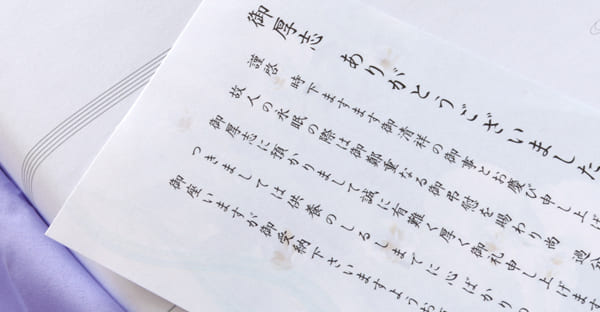 御厚志 ありがとうございました
謹啓 時下ますます御清祥の御事とお慶び申し上げ
故人の永眠の際は御鄭重なる御弔慰を賜わり尚 過分
御厚志に預かりまして誠に有難く厚く御礼申し上げます
つきましては供養のしるしまでに心ばかりの
御座いますが御受納下さいますようお